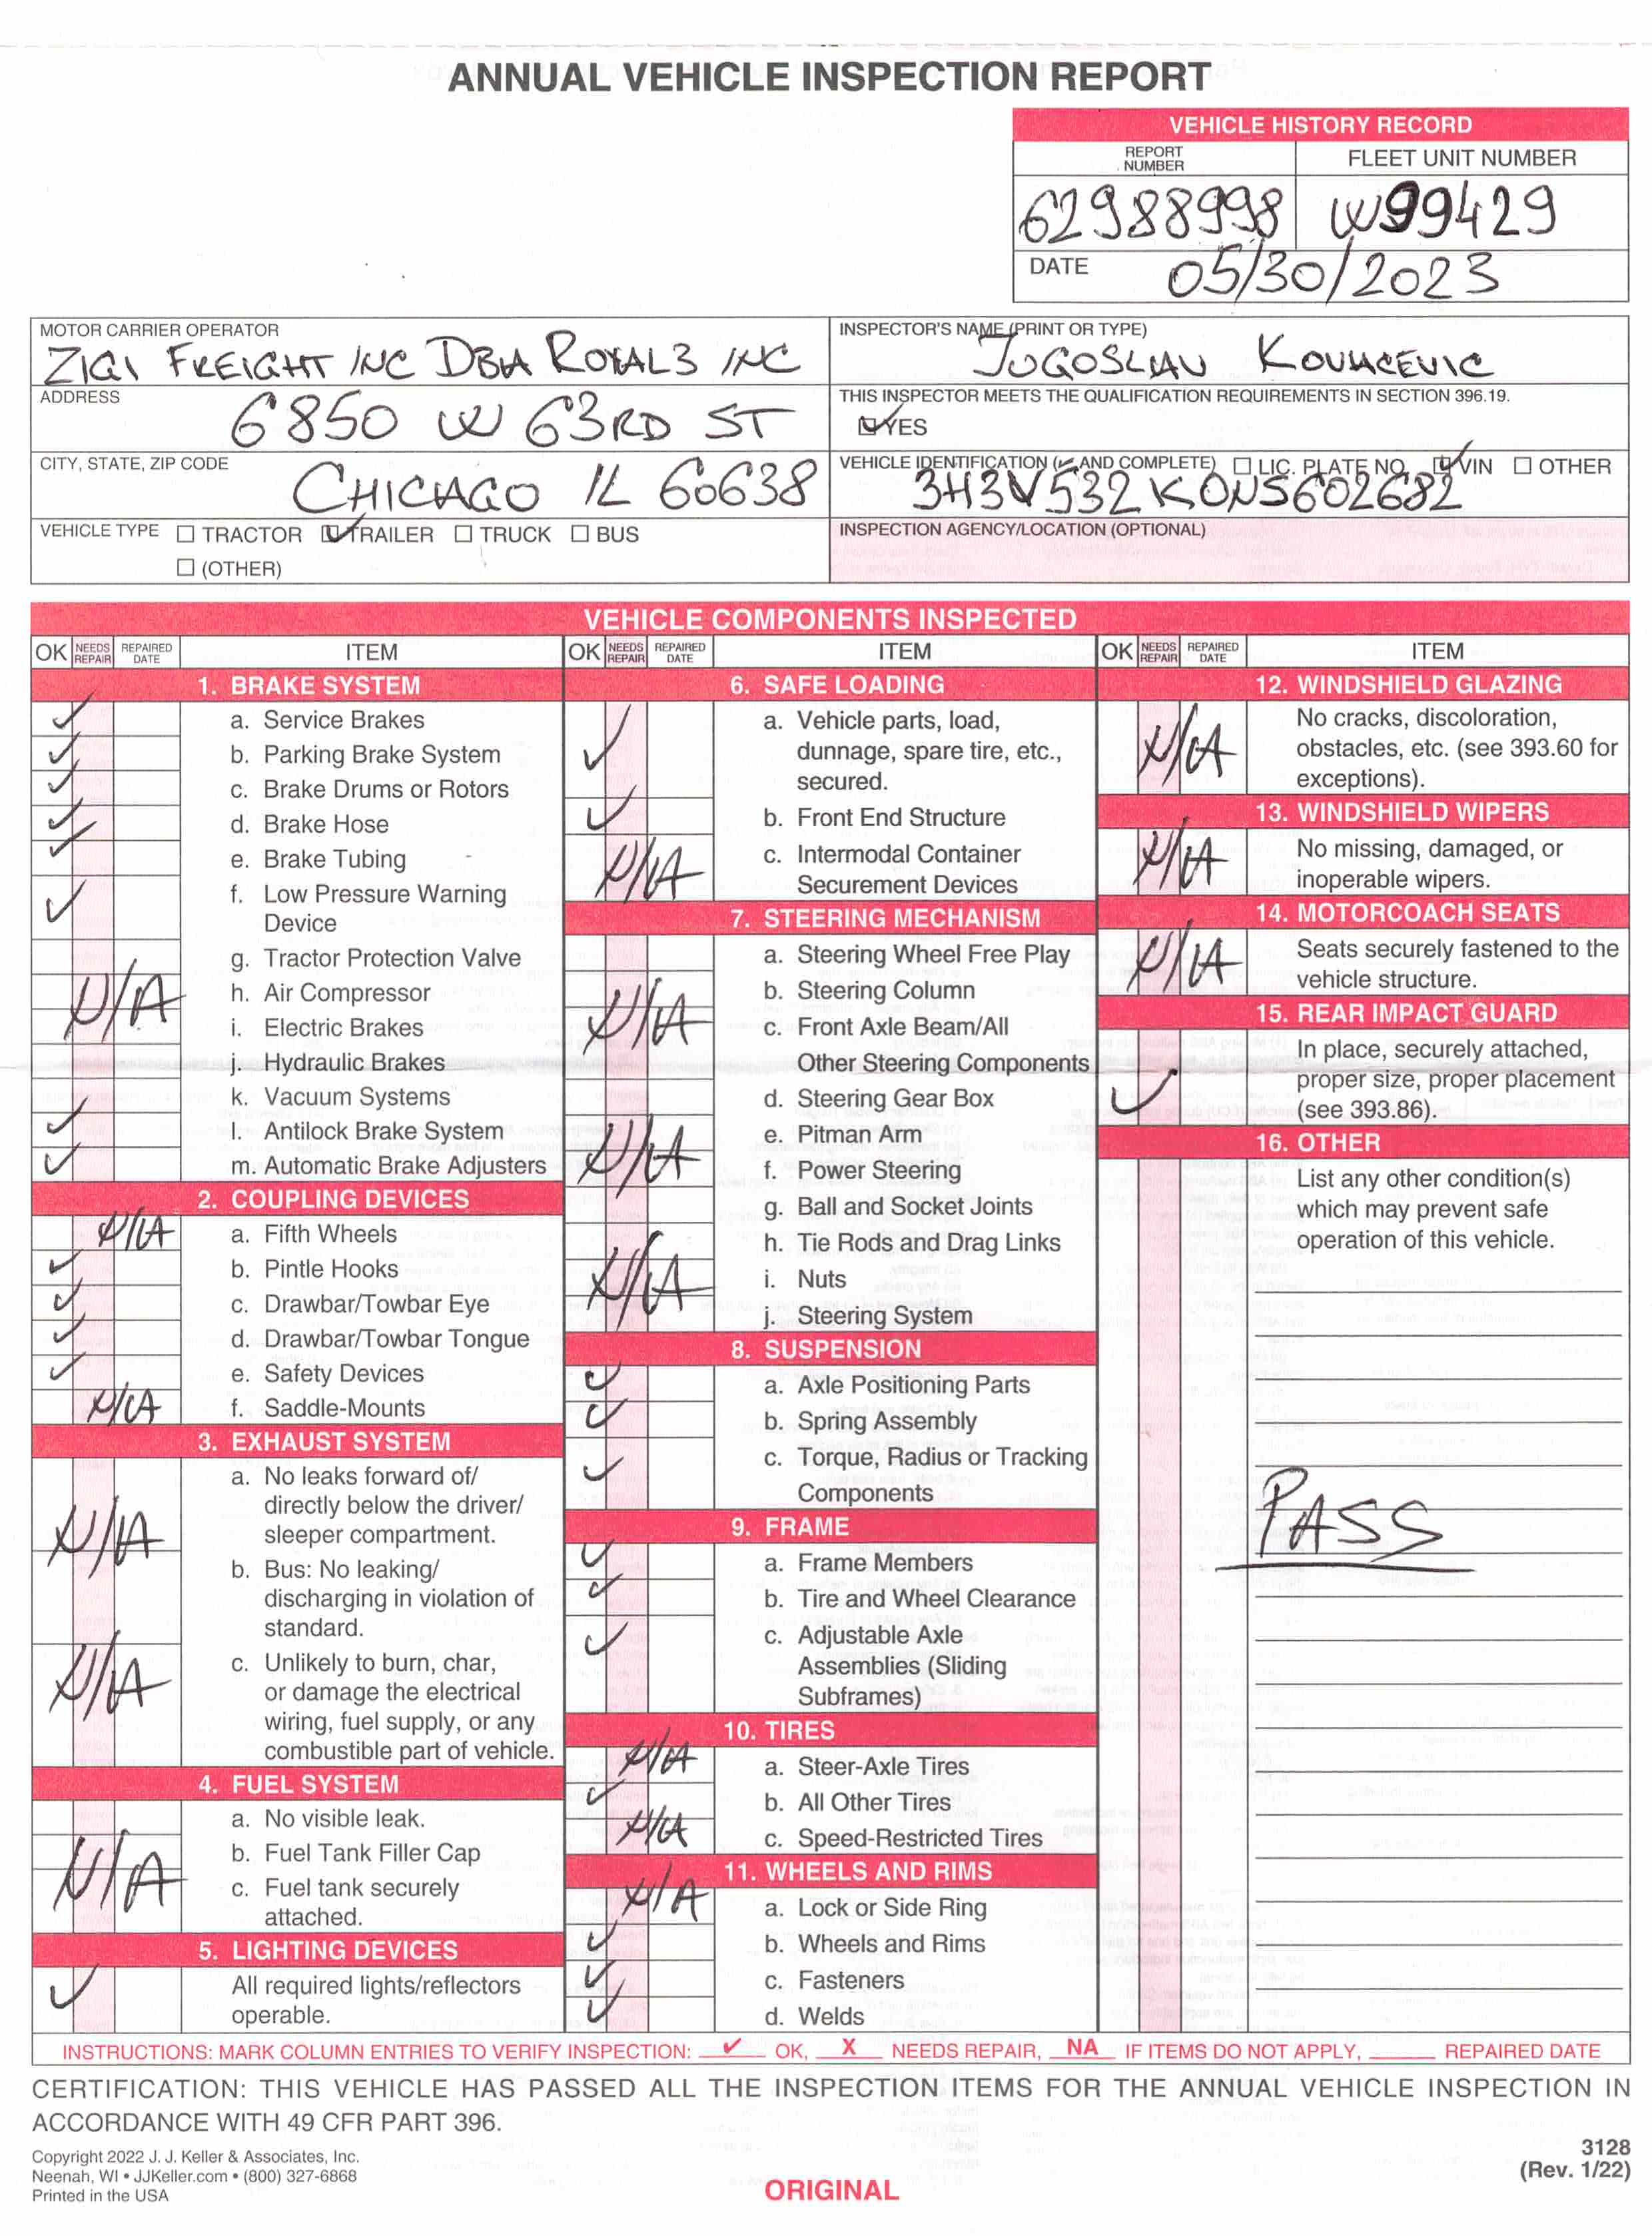 ANNUAL VEHICLE INSPECTION REPORT
VEHICLE HISTORY RECORD
REPORT NUMBER
FLEET UNIT NUMBER
62988998
W99429
DATE 05/30/2023
MOTOR CARRIER OPERATOR
ZIGI FREIGHT INC DBA ROYAL3 INC
ADDRESS
6850 W 63RD ST
CITY, STATE, ZIP CODE
CHICAGO IL 60638
VEHICLE TYPE ☐ TRACTOR ☑ TRAILER ☐ TRUCK ☐ BUS
☐ (OTHER)
INSPECTOR'S NAME (PRINT OR TYPE)
JUGOSLAV KOVACEVIC
THIS INSPECTOR MEETS THE QUALIFICATION REQUIREMENTS IN SECTION 396.19.
☑ YES
VEHICLE IDENTIFICATION (✓ AND COMPLETE) ☐ LIC. PLATE NO. ☑ VIN ☐ OTHER
3H3V532K0NS602682
INSPECTION AGENCY/LOCATION (OPTIONAL)
VEHICLE COMPONENTS INSPECTED
OK NEEDS REPAIR REPAIRED DATE ITEM
1. BRAKE SYSTEM
✓ a. Service Brakes
✓ b. Parking Brake System
✓ c. Brake Drums or Rotors
✓ d. Brake Hose
✓ e. Brake Tubing
✓ f. Low Pressure Warning
Device
g. Tractor Protection Valve
N/A h. Air Compressor
i. Electric Brakes
j. Hydraulic Brakes
k. Vacuum Systems
✓ l. Antilock Brake System
✓ m. Automatic Brake Adjusters
2. COUPLING DEVICES
N/A a. Fifth Wheels
✓ b. Pintle Hooks
✓ c. Drawbar/Towbar Eye
✓ d. Drawbar/Towbar Tongue
✓ e. Safety Devices
N/A f. Saddle-Mounts
3. EXHAUST SYSTEM
a. No leaks forward of/
directly below the driver/
N/A sleeper compartment.
b. Bus: No leaking/
discharging in violation of
standard.
N/A c. Unlikely to burn, char,
or damage the electrical
wiring, fuel supply, or any
combustible part of vehicle.
4. FUEL SYSTEM
a. No visible leak.
N/A b. Fuel Tank Filler Cap
c. Fuel tank securely
attached.
5. LIGHTING DEVICES
✓ All required lights/reflectors
operable.
OK NEEDS REPAIR REPAIRED DATE ITEM
6. SAFE LOADING
✓ a. Vehicle parts, load,
dunnage, spare tire, etc.,
secured.
✓ b. Front End Structure
N/A c. Intermodal Container
Securement Devices
7. STEERING MECHANISM
a. Steering Wheel Free Play
b. Steering Column
N/A c. Front Axle Beam/All
Other Steering Components
d. Steering Gear Box
e. Pitman Arm
N/A f. Power Steering
g. Ball and Socket Joints
h. Tie Rods and Drag Links
N/A i. Nuts
j. Steering System
8. SUSPENSION
✓ a. Axle Positioning Parts
✓ b. Spring Assembly
✓ c. Torque, Radius or Tracking
Components
9. FRAME
✓ a. Frame Members
✓ b. Tire and Wheel Clearance
✓ c. Adjustable Axle
Assemblies (Sliding
Subframes)
10. TIRES
N/A a. Steer-Axle Tires
✓ b. All Other Tires
N/A c. Speed-Restricted Tires
11. WHEELS AND RIMS
N/A a. Lock or Side Ring
✓ b. Wheels and Rims
✓ c. Fasteners
✓ d. Welds
OK NEEDS REPAIR REPAIRED DATE ITEM
12. WINDSHIELD GLAZING
No cracks, discoloration,
N/A obstacles, etc. (see 393.60 for
exceptions).
13. WINDSHIELD WIPERS
N/A No missing, damaged, or
inoperable wipers.
14. MOTORCOACH SEATS
N/A Seats securely fastened to the
vehicle structure.
15. REAR IMPACT GUARD
In place, securely attached,
✓ proper size, proper placement
(see 393.86).
16. OTHER
List any other condition(s)
which may prevent safe
operation of this vehicle.
PASS
INSTRUCTIONS: MARK COLUMN ENTRIES TO VERIFY INSPECTION: ✓ OK, X NEEDS REPAIR, NA IF ITEMS DO NOT APPLY, ____ REPAIRED DATE
CERTIFICATION: THIS VEHICLE HAS PASSED ALL THE INSPECTION ITEMS FOR THE ANNUAL VEHICLE INSPECTION IN
ACCORDANCE WITH 49 CFR PART 396.
Copyright 2022 J. J. Keller & Associates, Inc.
Neenah, WI • JJKeller.com • (800) 327-6868
Printed in the USA
ORIGINAL
3128
(Rev. 1/22)